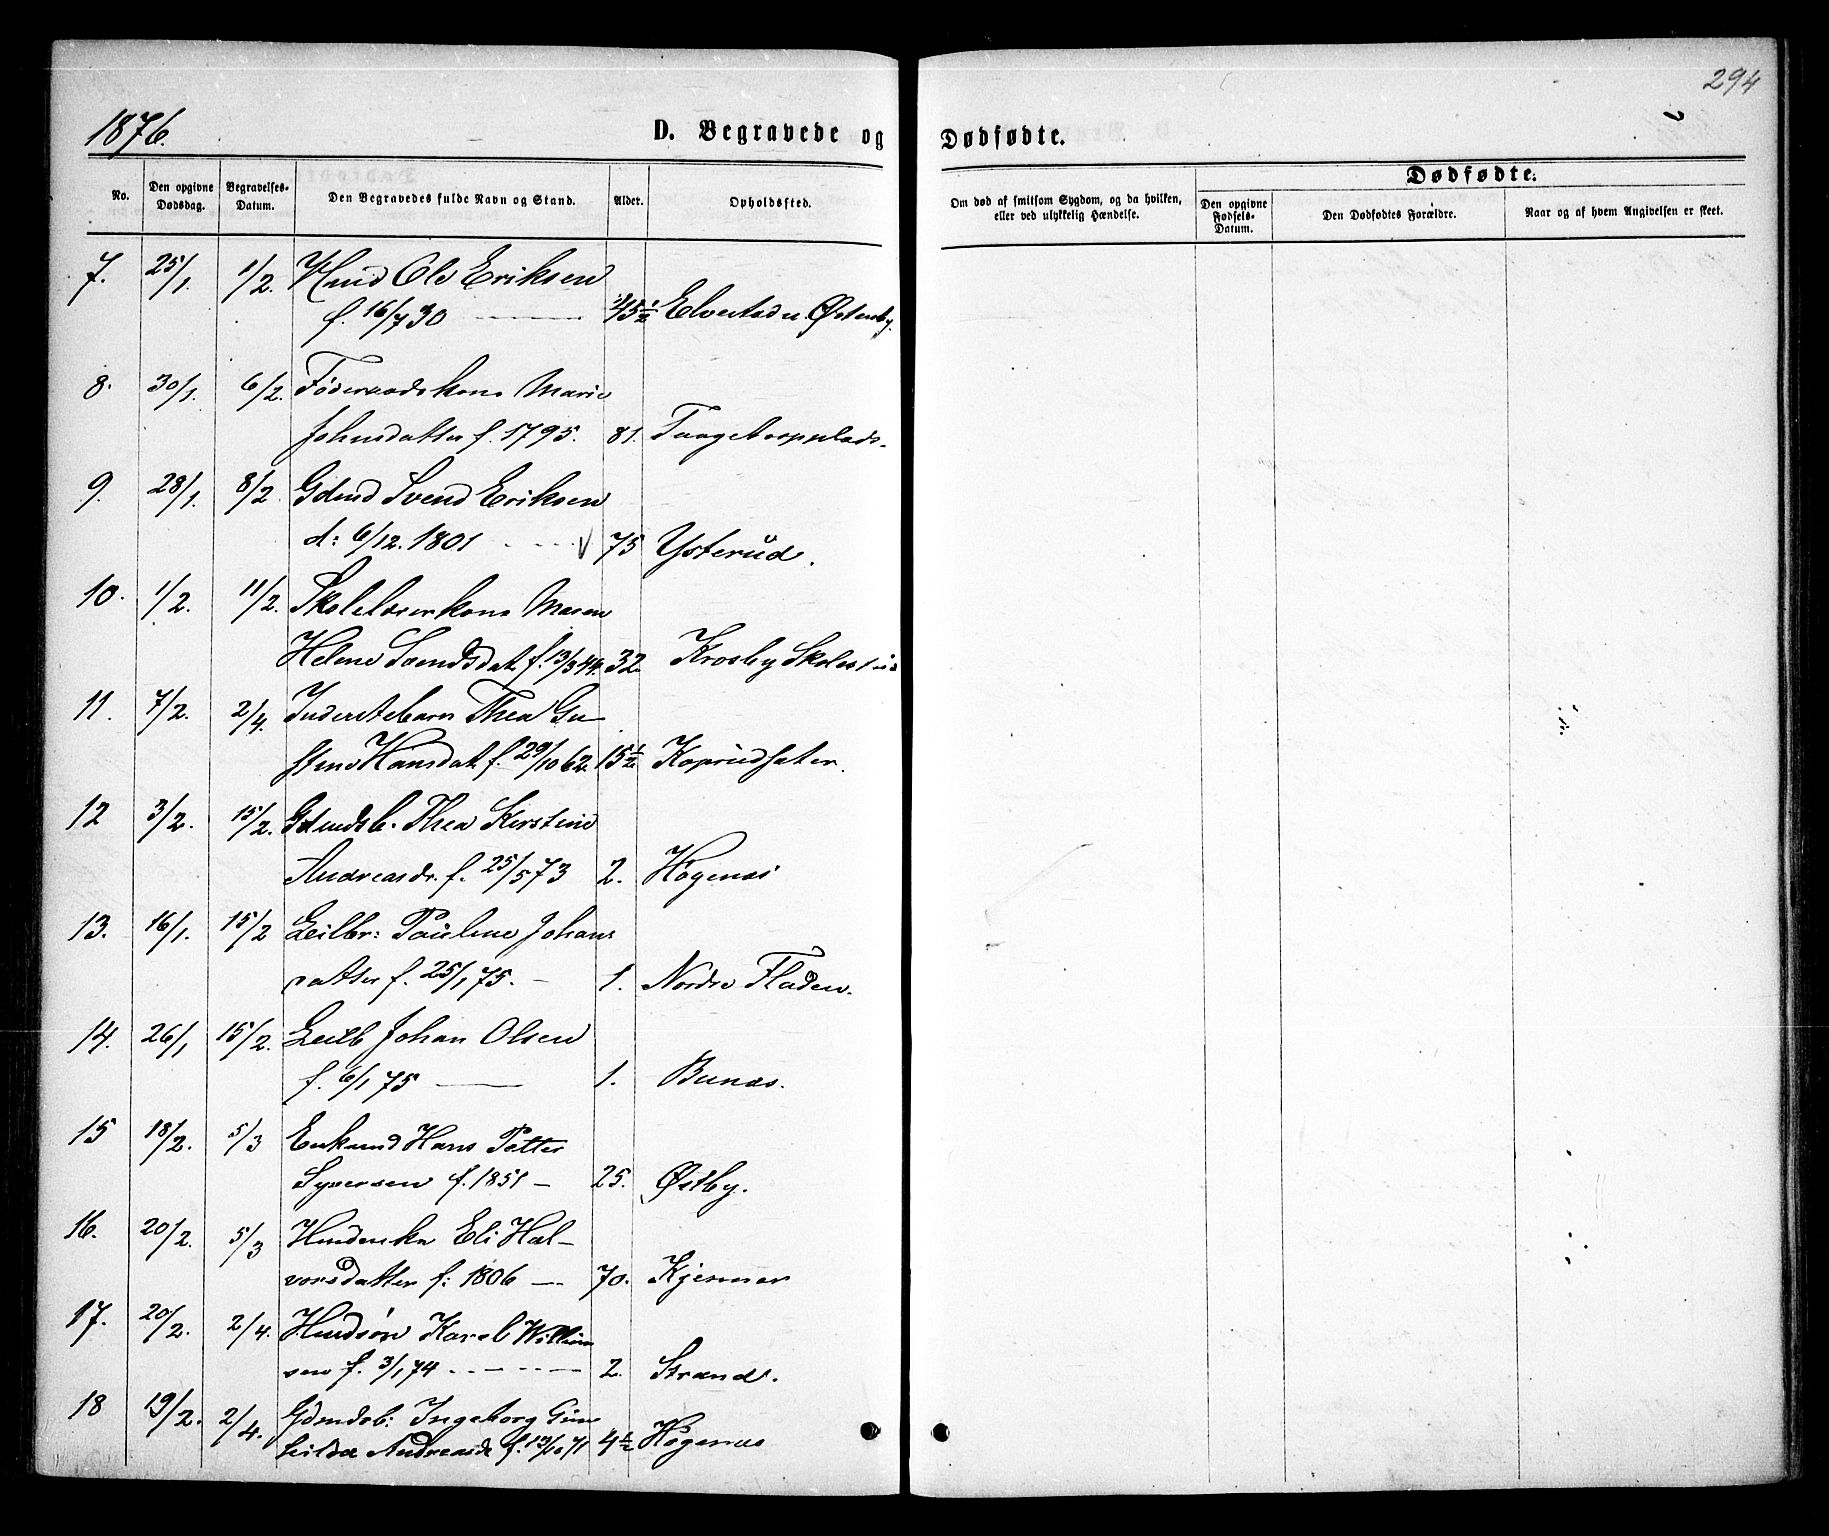 294
1876.
D. Begravede og Dødfødte.
No.
Den opgivne Dødsdag.
Begravelses-Datum.
Den Begravedes fulde Navn og Stand.
Alder.
Opholdssted.
Om død af smitsom Sygdom, og da hvilken, eller ved ulykkelig Hændelse.
Dødfødte.
Den opgivne Fødsels-Datum.
Den Dødfødtes Forældre.
Naar og af hvem Angivelsen er skeet.
7. 25/1. 1/2. Hmd Ole Eriksen
f. 16/7 30 45 1/2 Østenby.
8. 30/1. 6/2. Føderaadskone Marie
Johnsdatter f. 1795. 81.
9. 28/1. 8/2. Gdmd Svend Eriksen
d: 6/12. 1801 75 Ysterud.
10. 1/2. 11/2. Skolelærerkone Maren
Helene Svendsdat. f. 13/3 44. 32. Krosby
11. 7/2. 2/4. Inderstebarn Thea Gu-
stine Hansdat. f. 29/10 62. 15 1/2 Koprudsæter.
12 3/2. 15/2. Gdmdsb. Thea Kirstine
Andreasdr. f. 25/5 73 2. Høgenæs
13. 16/1. 15/2 Leilbr: Pauline Johans
datter f. 25/1 75. 1. Nordre Fladen.
14. 26/1 15/2. Leilb Johan Olsen
f. 6/1 75 1. Bunæs.
15 18/2. 5/3 Enkemd Hans Petter
Syversen f. 1851 - 25. Østby.
16. 20/2. 5/3 Hmdenke Eli Hal-
vorsdatter f: 1806 70. Kjennar
17. 20/2. 2/4. Hmdsøn Karel William
sen f. 3/1 74 2. Strand.
18 19/2. 2/4. Gdmdsb: Ingeborg Gun
hilda Andreasd. f. 13/10 71 4 1/2 Høgenæs